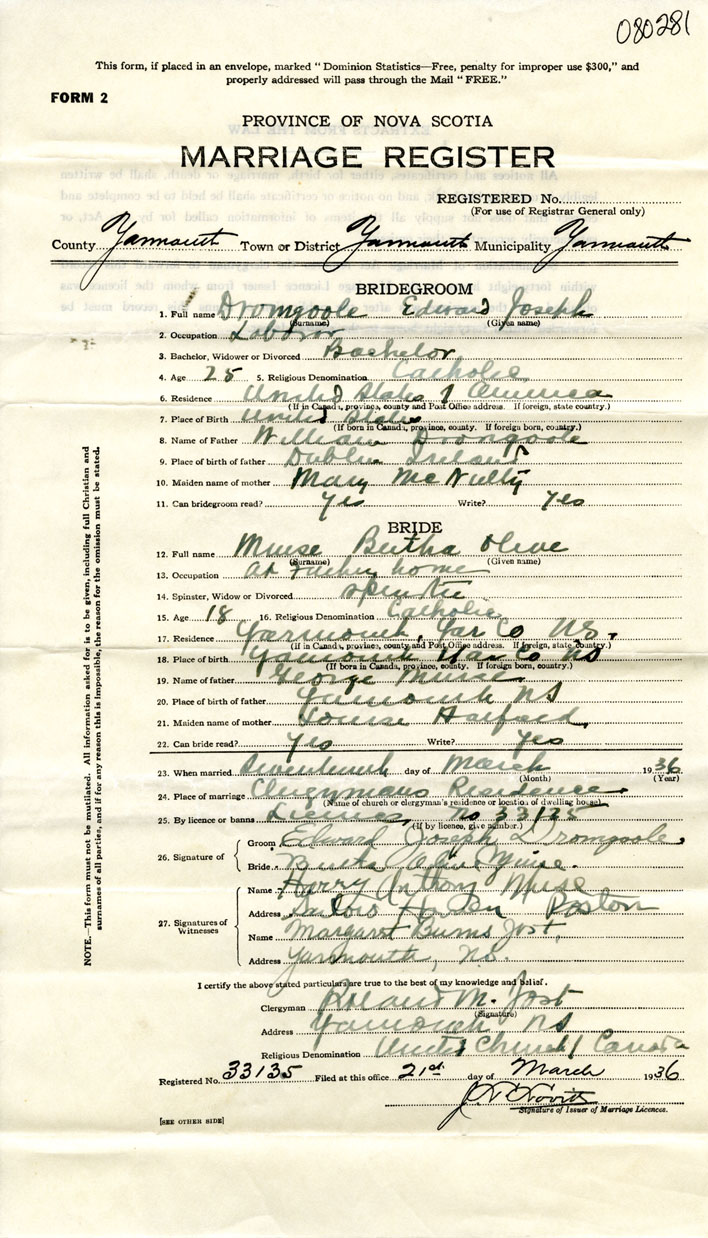 080281
This form, if placed in an envelope, marked "Dominion Statistics—Free, penalty for improper use $300," and
properly addressed will pass through the Mail "FREE."
FORM 2
PROVINCE OF NOVA SCOTIA
MARRIAGE REGISTER
REGISTERED No.
(For use of Registrar General only)
County Yarmouth Town or District Yarmouth Municipality Yarmouth
BRIDEGROOM
1. Full name Dromgoole Edward Joseph
(Surname) (Given name)
2. Occupation Laborer
3. Bachelor, Widower or Divorced Bachelor
4. Age 25 5. Religious Denomination Catholic
6. Residence United States of America
(If in Canada, province, county and Post Office address. If foreign, state country.)
7. Place of Birth United States
(If born in Canada, province, county. If foreign born, country.)
8. Name of Father William Dromgoole
9. Place of birth of father Dublin Ireland
10. Maiden name of mother Mary McNulty
11. Can bridegroom read? Yes Write? Yes
BRIDE
12. Full name Muise Bertha Olive
(Surname) (Given name)
13. Occupation at home
14. Spinster, Widow or Divorced Spinster
15. Age 18 16. Religious Denomination Catholic
17. Residence Yarmouth, Yar Co NS.
(If in Canada, province, county and Post Office address. If foreign, state country.)
18. Place of birth Yarmouth Yar Co NS
(If born in Canada, province, county. If foreign born, country.)
19. Name of father George Muise
20. Place of birth of father Yarmouth NS
21. Maiden name of mother Louise Hatfield
22. Can bride read? Yes Write? Yes
23. When married day of March 1936
(Month) (Year)
24. Place of marriage Clergymans Residence
(Name of church or clergyman's residence or location of dwelling house)
25. By licence or banns Licence, no
(If by licence, give number.)
26. Signature of
Groom Edward Joseph Dromgoole
Bride Bertha Olive Muise.
27. Signatures of Witnesses
Name Harry Anthony Muise
Address Boston
Name Margaret Burns Jost,
Address Yarmouth, NS.
I certify the above stated particulars are true to the best of my knowledge and belief.
Clergyman Roland M. Jost
(Signature)
Address Yarmouth NS
Religious Denomination United Church of Canada
Registered No. 33135 Filed at this office 21st day of March 1936
Signature of Issuer of Marriage Licences.
[SEE OTHER SIDE]
NOTE.—This form must not be mutilated. All information asked for is to be given, including full Christian and
surnames of all parties, and if for any reason this is impossible, the reason for the omission must be stated.